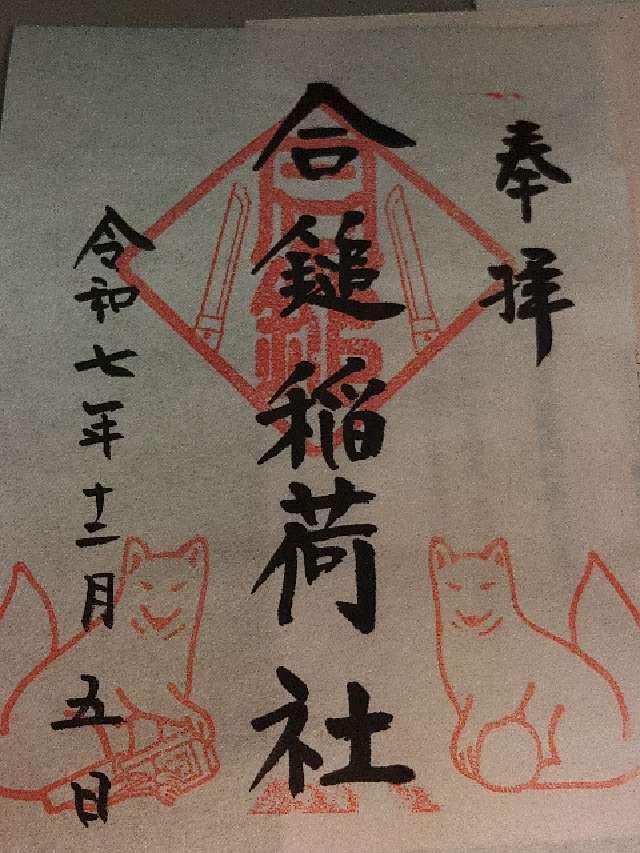 奉拝
合鎚稲荷社
令和七年十二月五日